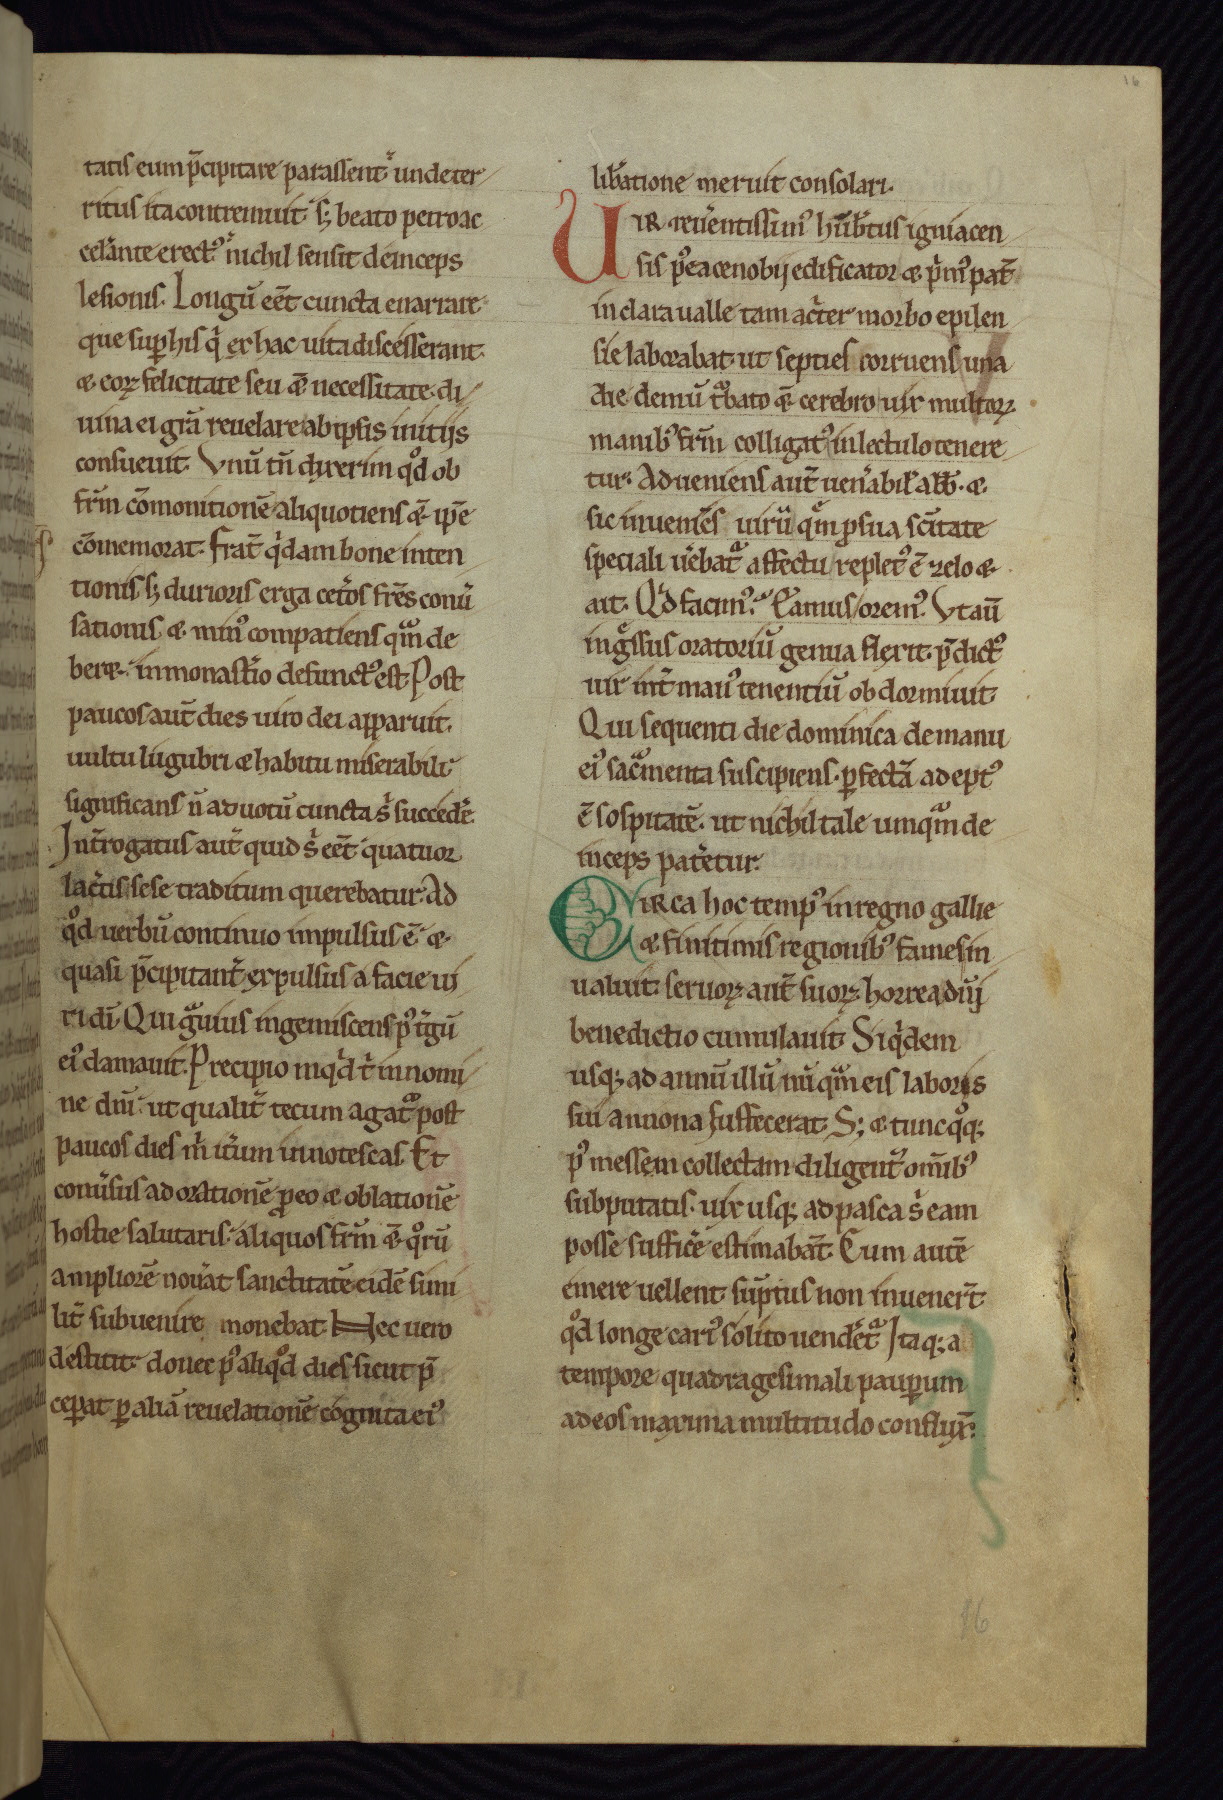 16
tatis eum p̄cipitare parassent᷑ undeter
ritus ita contremuit. s; beato petro ac
celerante erect᷒ nichil sensit deinceps
lesionis. Longū eēt cuncta enarrare
que sup his q̇ ex hac uita discesserant.
⁊ coꝝ felicitate seu &̄ necessitate. di
uina ei gr̄a reuelare ab ipsis initijs
consueuit. Vnū tn̄ dixerim qd̓ ob
fr̄m cōmonitionē aliquotiens &̄ ip̄e
cōmemorat. Frat᷑ q̇dam bone inten
tionis. s; durioris erga cet̓os fr̄es conu̓
sationis ⁊ min᷒ compatiens qͣm de
bere. in monast̓io defunct᷒ est. Post
paucos aut̄ dies uiro dei apparuit.
uultu lugubri ⁊ habitu miserabili.
significans n̄ ad uotū cuncta s̓ succed̓e.
Int̓rogatus aut̄ quid s̓ eēt. quatuor
lact̓is sese traditum querebatur. Ad
qd̓ uerbū continuo impulsus ē ⁊
quasi p̄cipitant᷑ expulsus a facie ui
ri di. Qui gͣuius ingemiscens p᷒ t̓gū
ei᷒ clamauit. Precipio inqd̓ t̓ in nomi
ne dn̄i. ut qualit᷑ tecum agatͣ post
paucos dies m̓ it̓um innotescas. Et
conu̓sus ad orationē p̄ eo ⁊ oblationē
hostie salutaris. aliquos fr̄m &̄ qͦrū
ampliorē nou̓at sanctitatē eidē simi
lit᷑ subuenire monebat. Nec uero
destitit. donec p᷒ aliqd̓ dies sicut p̄
ceperat p aliā reuelationē cognita ei᷒
lib̓atione meruit consolari.
UIR reu̓entissim᷒ hūb̓tus igniacen
sis p᷒ea cenobij edificator ⁊ p̓m᷒ pat᷑
in clara ualle tam ac̓ter morbo epilen
sie laborabat. ut septies corruens una
die demū t̓bato &̄ cerebro uix multoꝝ
manib᷒ fr̄m colligat᷒ in lectulo tenere
tur. Adueniens aut̄ uen̓abil̓ abb̄. ⁊
sic inueniēs uirū qͣm p sua sc̄itate
speciali u̓ebatͣ affectu. replet᷒ ē zelo ⁊
ait. Qd̓ facim᷒? Eamus. orem᷒. Vt aū
ingͣssus oratoriū genua flexit. p̄dict᷒
uir int̓ man᷒ tenentiū obdormiuit.
Qui sequenti die dominica de manu
ei᷒ sacͣmenta suscipiens. pfectā adept᷒
ē sospitatē. ut nichil tale umqͣm de
inceps pat̓etur.
CIRca hoc temp᷒ in regno gallie
⁊ finitimis regionib᷒ fames in
ualuit. seruoꝝ aut̄ suoꝝ horrea dn̄i
benedictio cumulauit. Siq̇dem
usq; ad annū illū nūqͣm eis laboris
sui annona suffecerat. S; ⁊ tunc qͦq;
p᷒ messem collectam diligent᷑ om̄ib᷒
subputatis. uix usq; ad pasca s̓ eam
posse suffic̓e estimabāt. Cum autē
emere uellent. sūptus non inuener̄t.
qd̓ longe cari᷒ solito uend̓etͣ. Itaq; a
tempore quadragesimali paupum
ad eos maxima multitudo confluxr̄.
16